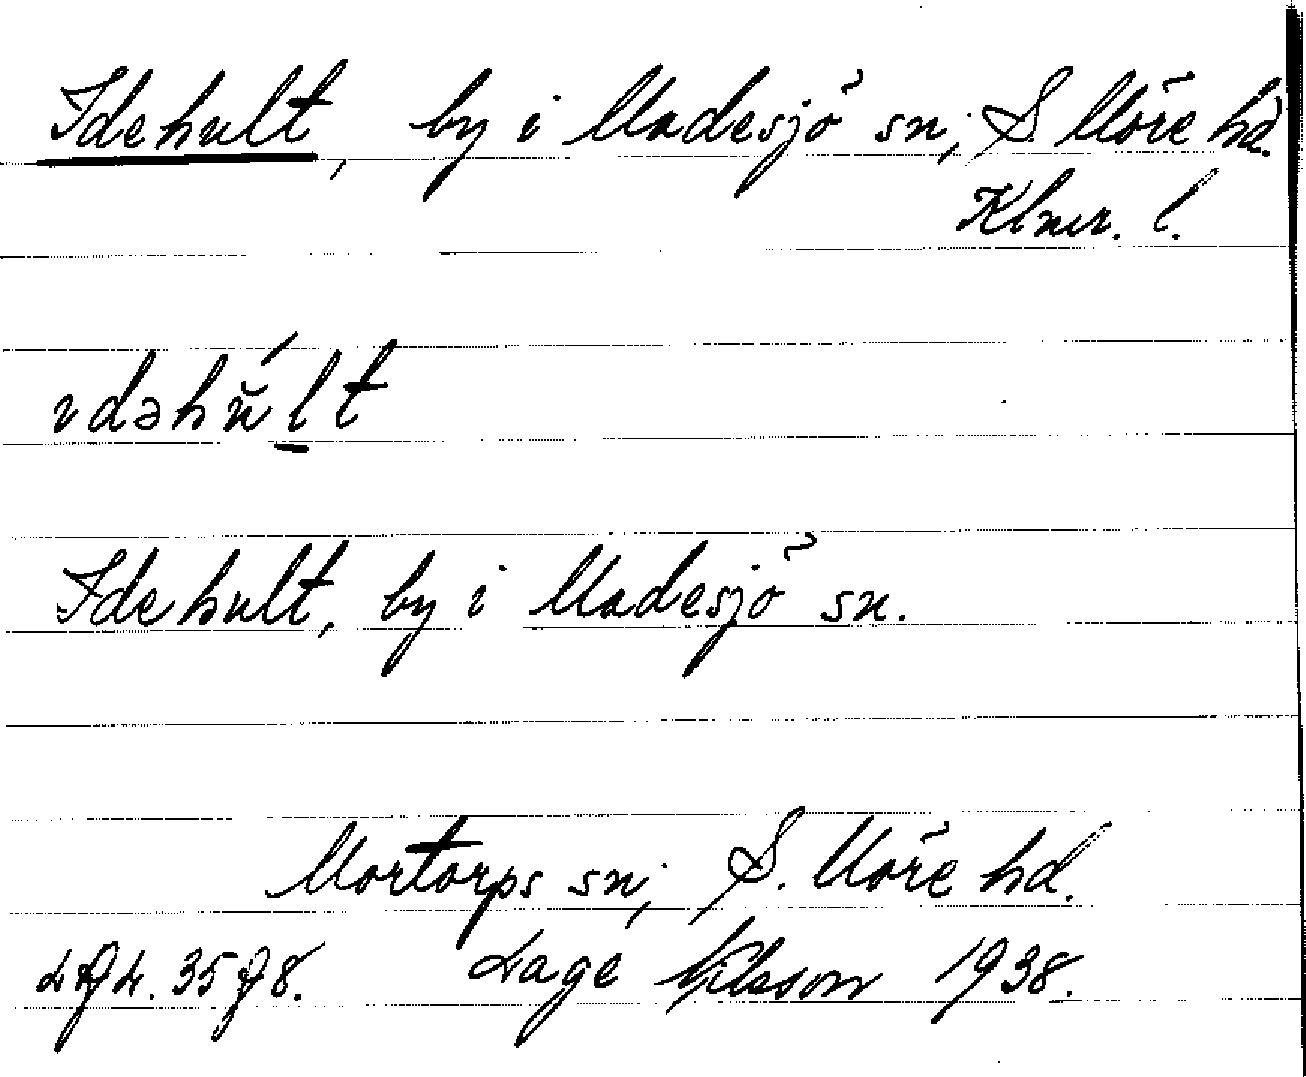 Idehult, by i Madesjö sn, S. Möre hd.
Klmr. l.
ıdəhŭ́lt
Idehult, by i Madesjö sn.
Mortorps sn, S. Möre hd.
Lage Nilsson 1938.